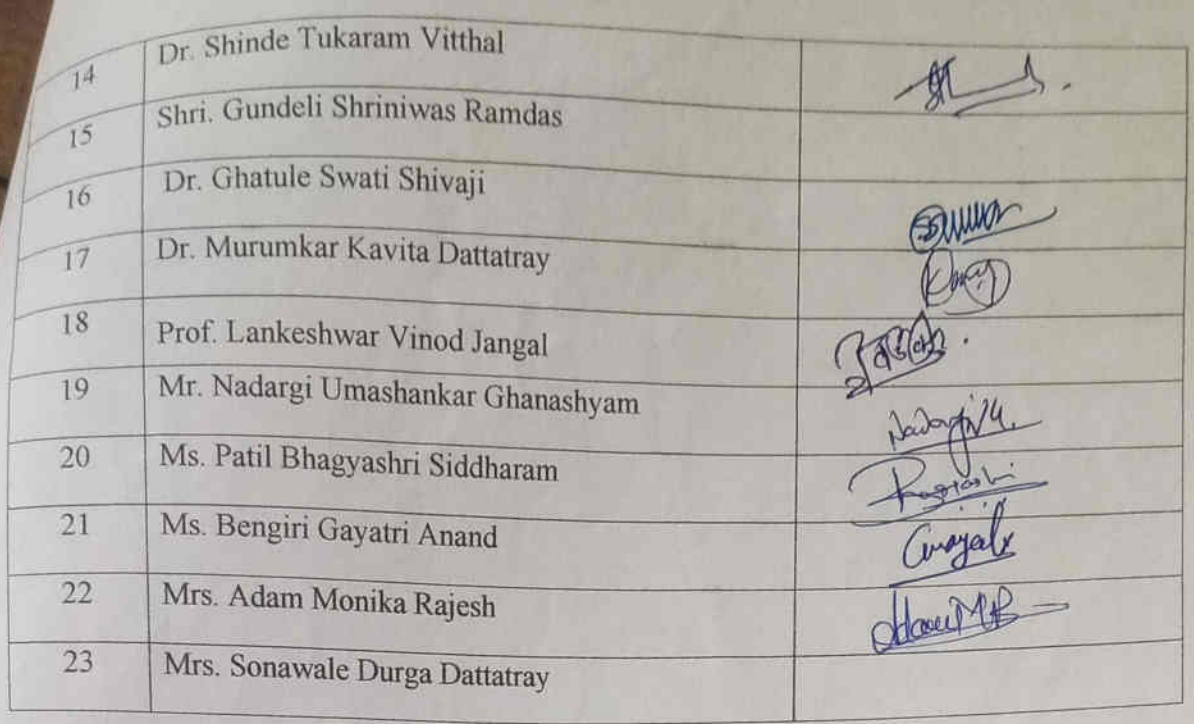 14 Dr. Shinde Tukaram Vitthal
15 Shri. Gundeli Shriniwas Ramdas
16 Dr. Ghatule Swati Shivaji
17 Dr. Murumkar Kavita Dattatray
18 Prof. Lankeshwar Vinod Jangal
19 Mr. Nadargi Umashankar Ghanashyam
20 Ms. Patil Bhagyashri Siddharam
21 Ms. Bengiri Gayatri Anand
22 Mrs. Adam Monika Rajesh
23 Mrs. Sonawale Durga Dattatray